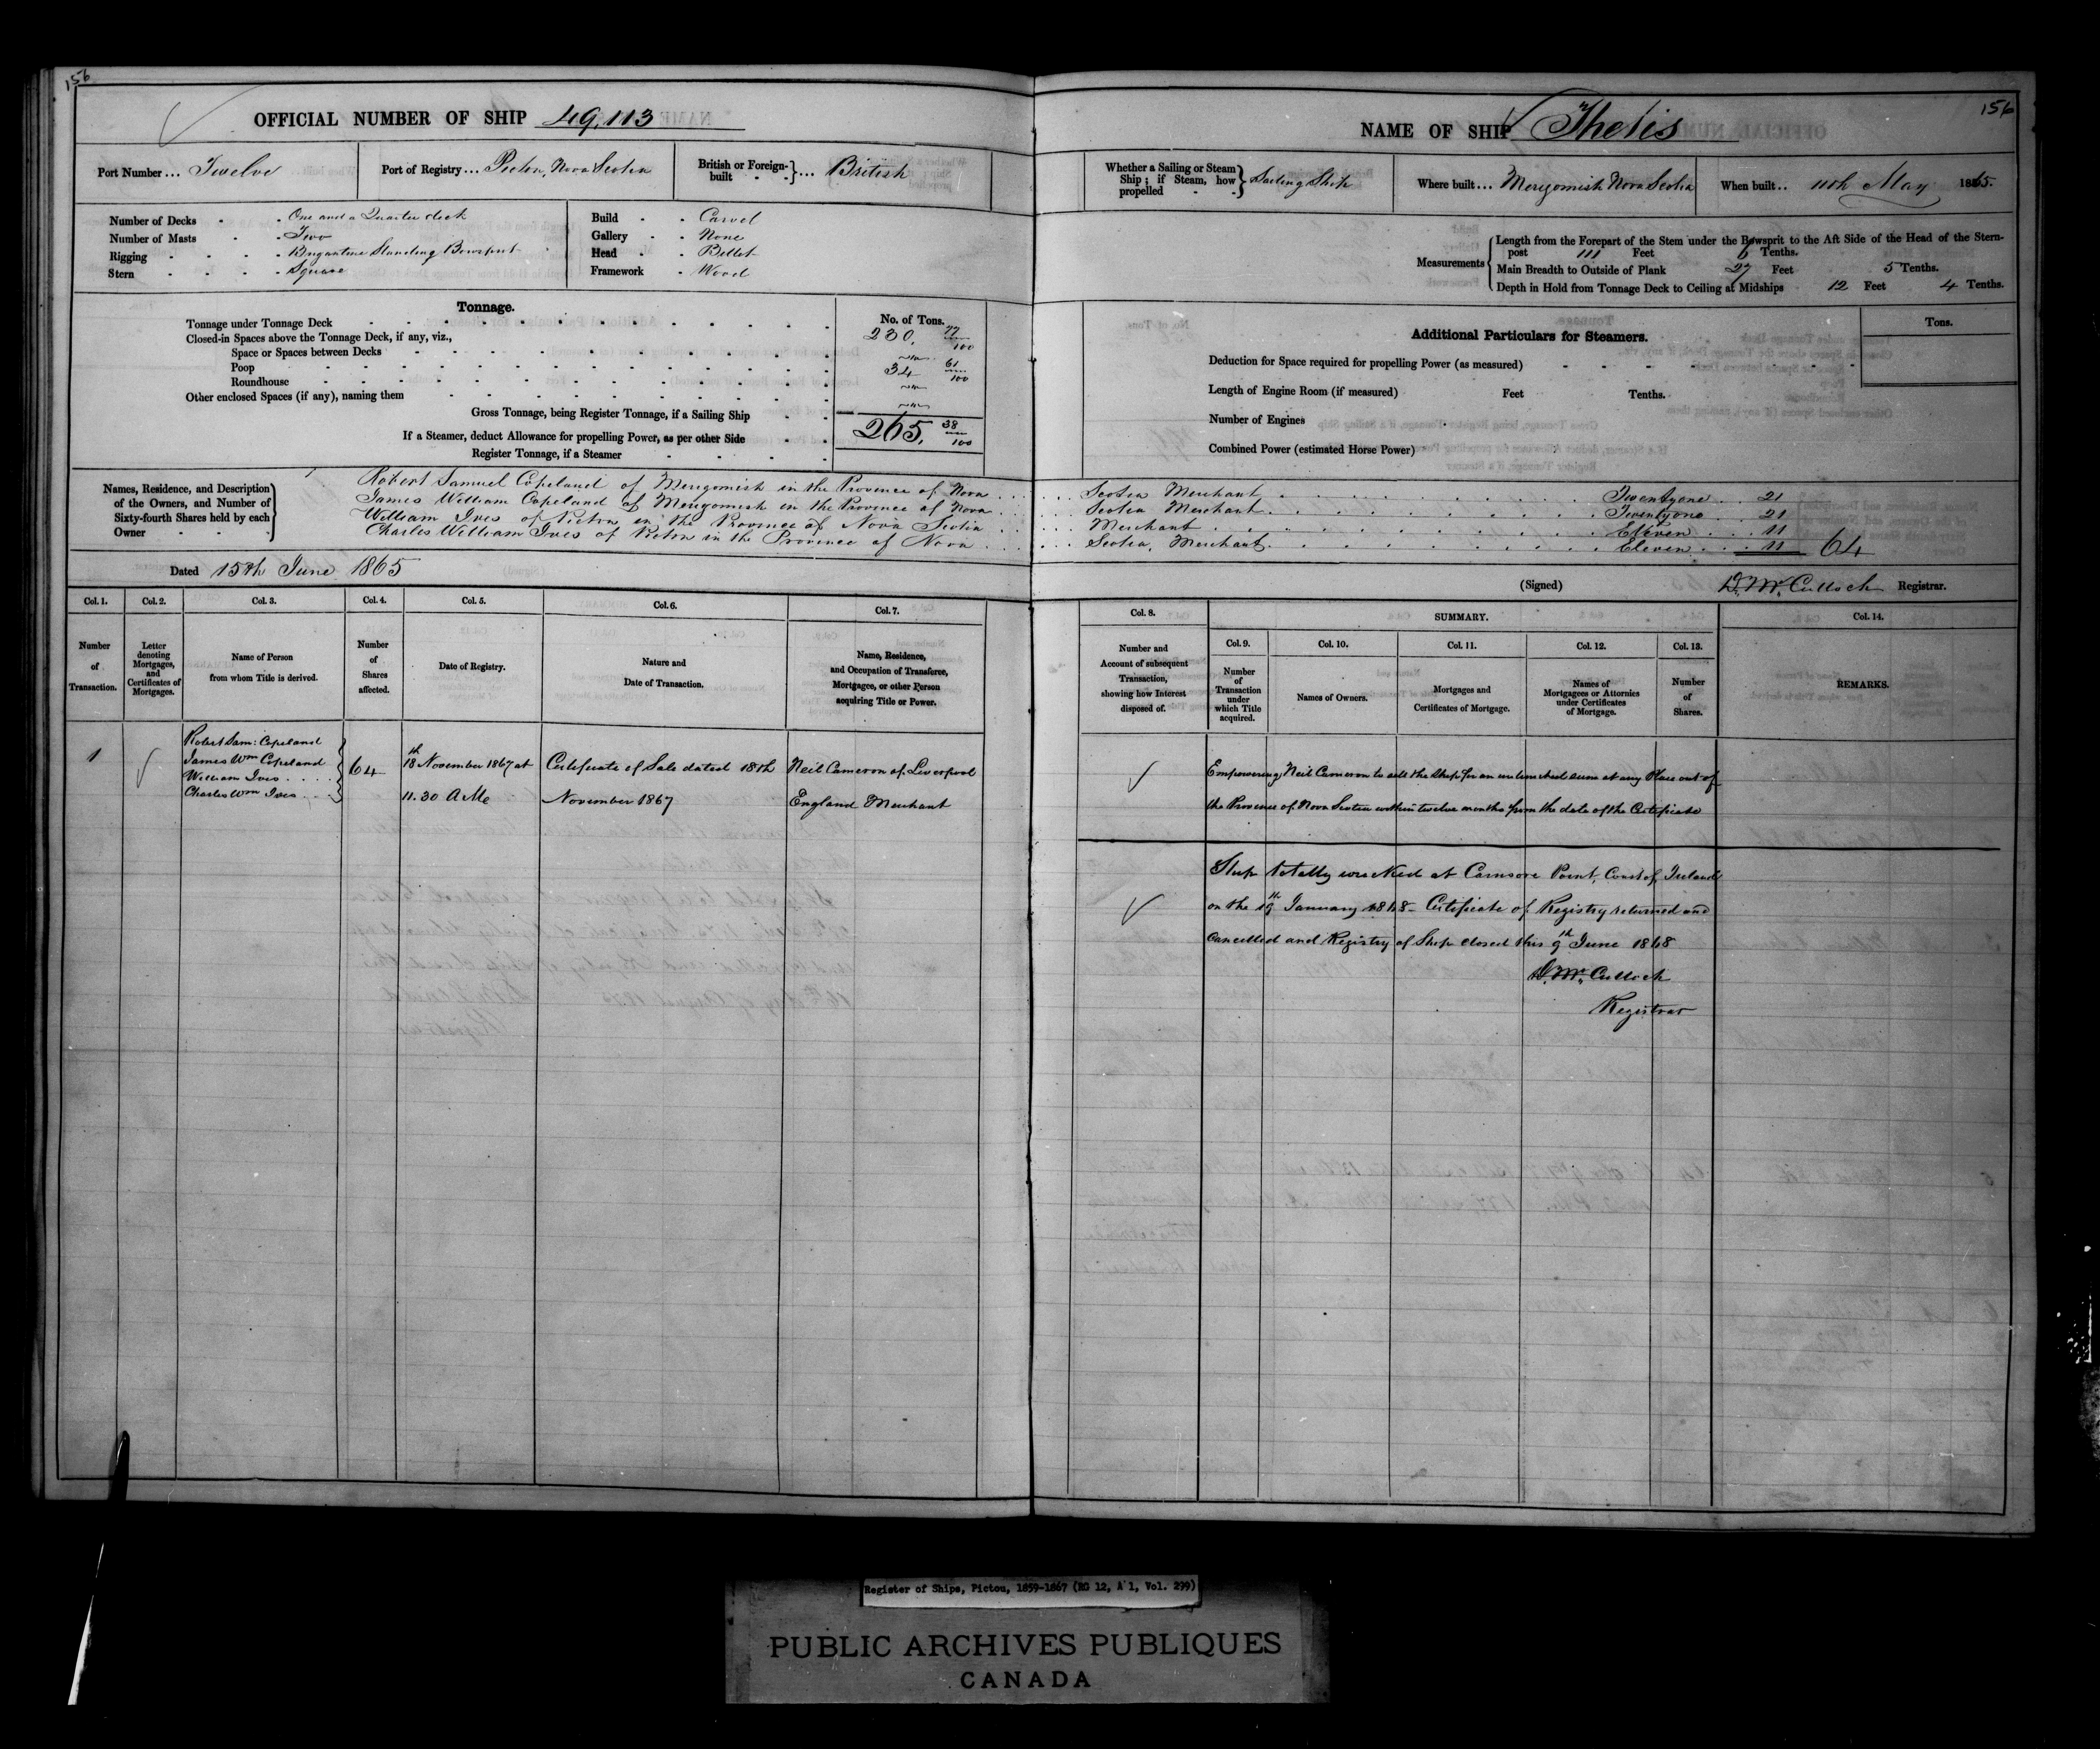 156
OFFICIAL NUMBER OF SHIP 49,113
Port Number ... Twelve
Port of Registry ... Pictou, Nova Scotia
British or Foreign-built } ... British
Number of Decks - - One and a Quarter deck
Number of Masts - - Two
Rigging - - - - Brigantine Standing Bowsprit
Stern - - - - Square
Build - - Carvel
Gallery - - None
Head - - Billet
Framework - Wood
Tonnage.
No. of Tons.
Tonnage under Tonnage Deck 230. 77/100
Closed-in Spaces above the Tonnage Deck, if any, viz.,
Space or Spaces between Decks
Poop 34 61/100
Roundhouse
Other enclosed Spaces (if any), naming them
Gross Tonnage, being Register Tonnage, if a Sailing Ship
If a Steamer, deduct Allowance for propelling Power, as per other Side 265. 38/100
Register Tonnage, if a Steamer
156
NAME OF SHIP Thetis
Whether a Sailing or Steam Ship; if Steam, how propelled } Sailing Ship
Where built ... Merigomish Nova Scotia
When built .. 11th May 1865.
Measurements
Length from the Forepart of the Stem under the Bowsprit to the Aft Side of the Head of the Stern-
post 111 Feet 6 Tenths.
Main Breadth to Outside of Plank 27 Feet 5 Tenths.
Depth in Hold from Tonnage Deck to Ceiling at Midships 12 Feet 4 Tenths.
Additional Particulars for Steamers.
Tons.
Deduction for Space required for propelling Power (as measured)
Length of Engine Room (if measured) Feet Tenths.
Number of Engines
Combined Power (estimated Horse Power)
Names, Residence, and Description
of the Owners, and Number of
Sixty-fourth Shares held by each
Owner
Robert Samuel Copeland of Merigomish in the Province of Nova ...... Scotia Merchant ...... Twentyone .. 21
James William Copeland of Merigomish in the Province of Nova ...... Scotia Merchant ...... Twentyone .. 21
William Ives of Pictou in the Province of Nova Scotia ...... Merchant ...... Eleven ... 11
Charles William Ives of Pictou in the Province of Nova ...... Scotia, Merchant ...... Eleven ... 11 64
Dated 15th June 1865
(Signed) D. McCulloch Registrar.
Col. 1.
Number
of
Transaction.
Col. 2.
Letter
denoting
Mortgages,
and
Certificates of
Mortgages.
Col. 3.
Name of Person
from whom Title is derived.
Col. 4.
Number
of
Shares
affected.
Col. 5.
Date of Registry.
Col. 6.
Nature and
Date of Transaction.
Col. 7.
Name, Residence,
and Occupation of Transferee,
Mortgagee, or other Person
acquiring Title or Power.
Col. 8.
Number and
Account of subsequent
Transaction,
showing how Interest
disposed of.
SUMMARY.
Col. 9.
Number
of
Transaction
under
which Title
acquired.
Col. 10.
Names of Owners.
Col. 11.
Mortgages and
Certificates of Mortgage.
Col. 12.
Names of
Mortgagees or Attornies
under Certificates
of Mortgage.
Col. 13.
Number
of
Shares.
Col. 14.
REMARKS.
1
Robert Sam: Copeland
James Wm Copeland
William Ives ....
Charles Wm Ives ...
64
18th November 1867 at
11.30 AM
Certificate of Sale dated 18th
November 1867
Neil Cameron of Liverpool
England Merchant
Empowering Neil Cameron to sell the ship for an unlimited sum at any Place out of
the Province of Nova Scotia within twelve months from the date of the Certificate
Ship totally wrecked at Carnsore Point, Coast of Ireland
on the 19th January 1868 - Certificate of Registry returned and
Cancelled and Registry of Ship closed this 9th June 1868
D. McCulloch
Registrar
Register of Ships, Pictou, 1859-1867 (RG 12, A 1, Vol. 299)
PUBLIC ARCHIVES PUBLIQUES
CANADA